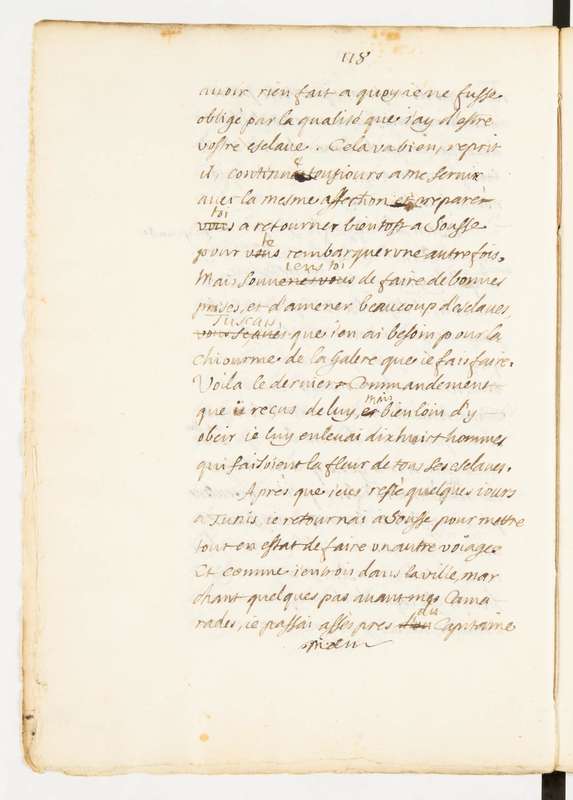 118
avoir rien fait a quoy ie ne fusse
obligé par la qualité que i'ay d'estre
vostre esclave. Cela va bien, reprit
il, continue tousiours a me servir
avec la mesme affection et prepare
toi
vous a retourner bientost a Sousse
te
pour vous rembarquer vne autre fois.
iens toi
Mais souvenes vous de faire de bonnes
prises, et d'amener beaucoup d'esclaves,
Tu scais
vous scavés que i'en ai besoin pour la
chiourme de la Galere que ie fais faire.
Voila le dernier Commandement
mais
que ie reçus de luy, et bien loin d'y
obeir ie luy enlevai dixhuict hommes
qui faisoient la fleur de tous ses esclaves.
Après que i'eus resté quelques iours
a Tunis, ie retournai a Sousse pour mettre
tout en estat de faire vn autre voiage
Et comme i'entrois dans la ville, mar
chant quelques pas avant mes Cama
du
rades, ie passai assés pres d'un Capitaine